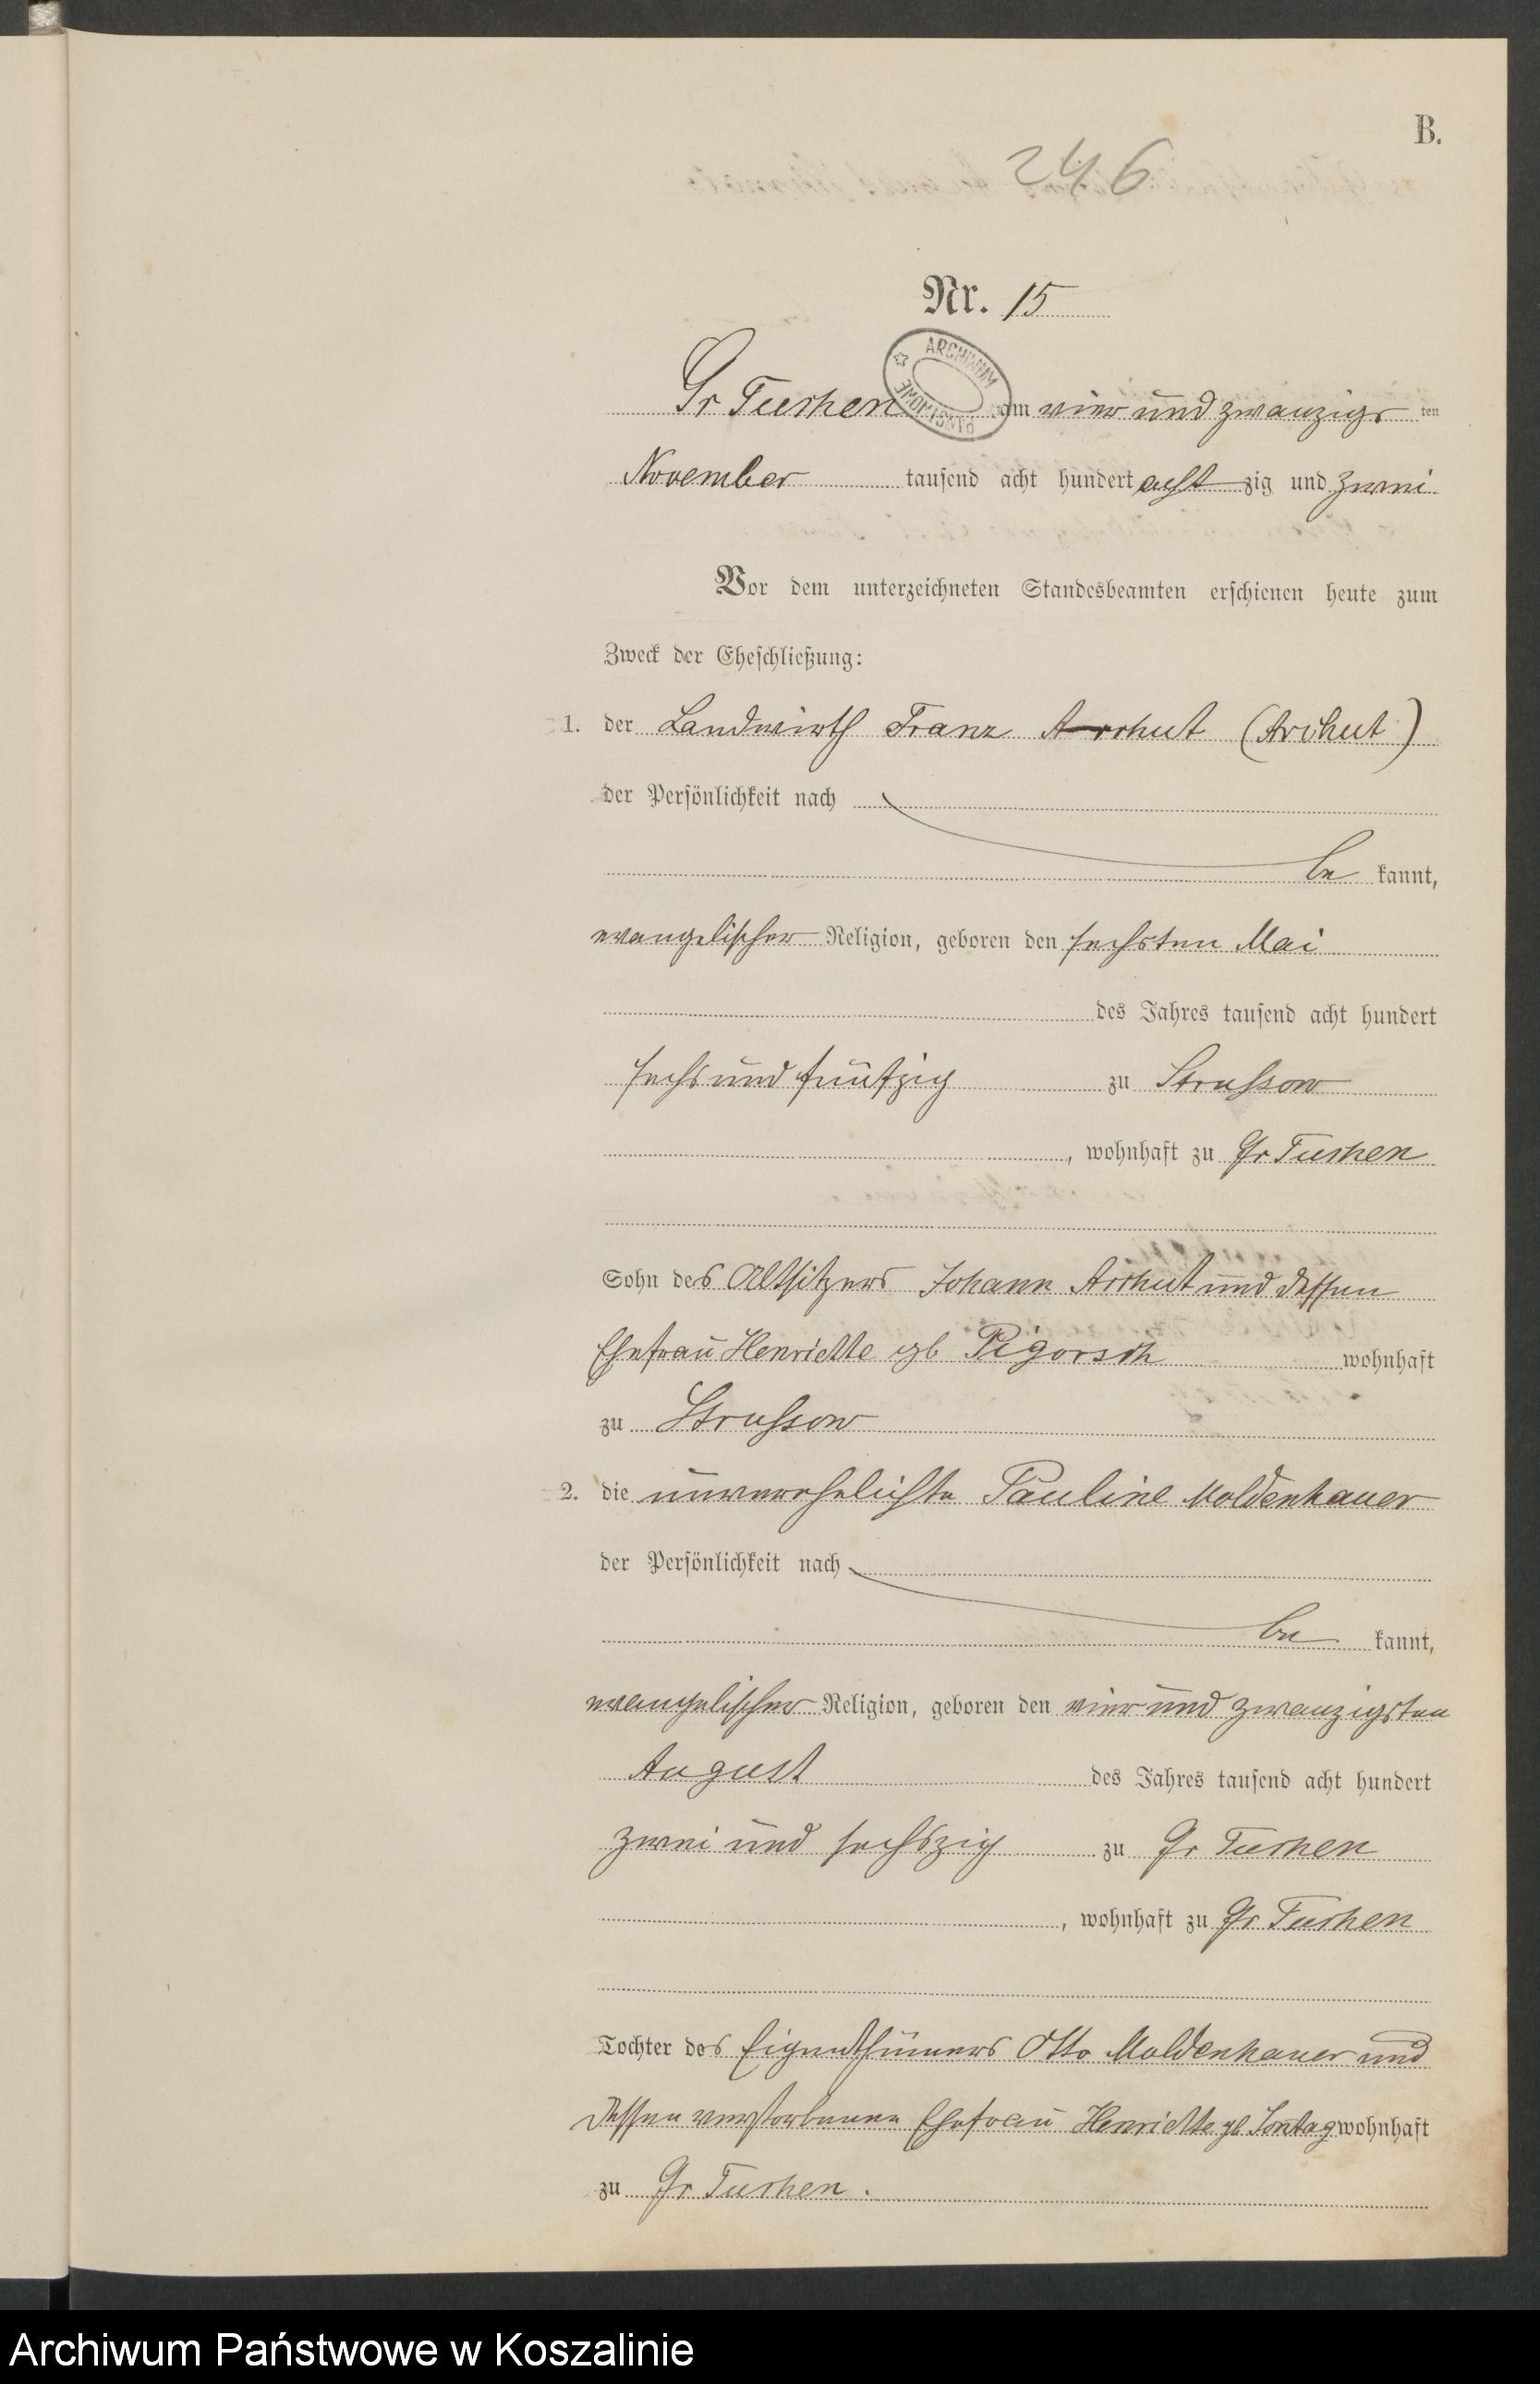 B.
246
Nr. 15
Gr Tuchen am vier und zwanzigs ten
ARCHIWUM PAŃSTWOWE
November tausend acht hundert acht zig und zwei
Vor dem unterzeichneten Standesbeamten erschienen heute zum
Zweck der Eheschließung:
1. der Landwirth Franz Archut (Archut)
der Persönlichkeit nach
be kannt,
evangelischer Religion, geboren den sechsten Mai
des Jahres tausend acht hundert
sechs und fünfzig zu Strussow
, wohnhaft zu Gr Tuchen
Sohn des Altsitzers Johann Archut und dessen
Ehefrau Henriette gb Pigorsch wohnhaft
zu Strussow
2. die unverehelichte Pauline Moldenhauer
der Persönlichkeit nach
be kannt,
evangelischer Religion, geboren den vier und zwanzigsten
August des Jahres tausend acht hundert
zwei und sechszig zu Gr Tuchen
, wohnhaft zu Gr Tuchen
Tochter des Eigenthümers Otto Moldenhauer und
dessen verstorbenen Ehefrau Henriette gb Sontag wohnhaft
zu Gr Tuchen.
Archiwum Państwowe w Koszalinie